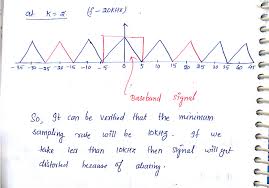 at K=2 (f-20KHz)
-35 -30 -25 -20 -15 -10 -5 0 5 10 15 20 25 30 35 40 45
Baseband Signal
So, It can be verified that the minimum
sampling rate will be 10KHZ. If we
take less than 10KHz then signal will get
distorted because of aliasing.